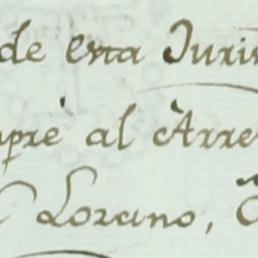 de esta Juris
mpre al Arre
Lozano,